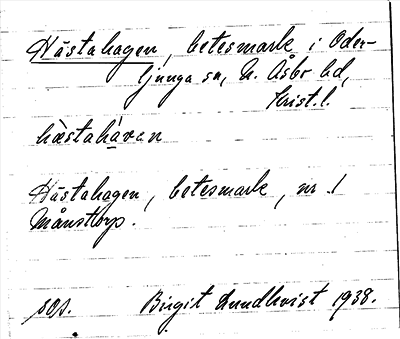 Hästahagen, betesmark i Oder-
ljunga sn, N. Åsbo hd,
Krist. l.
hæstahàvan
Hästahagen, betesmark, nr 1
Månstorp.
sos. Birgit Lundkvist 1938.